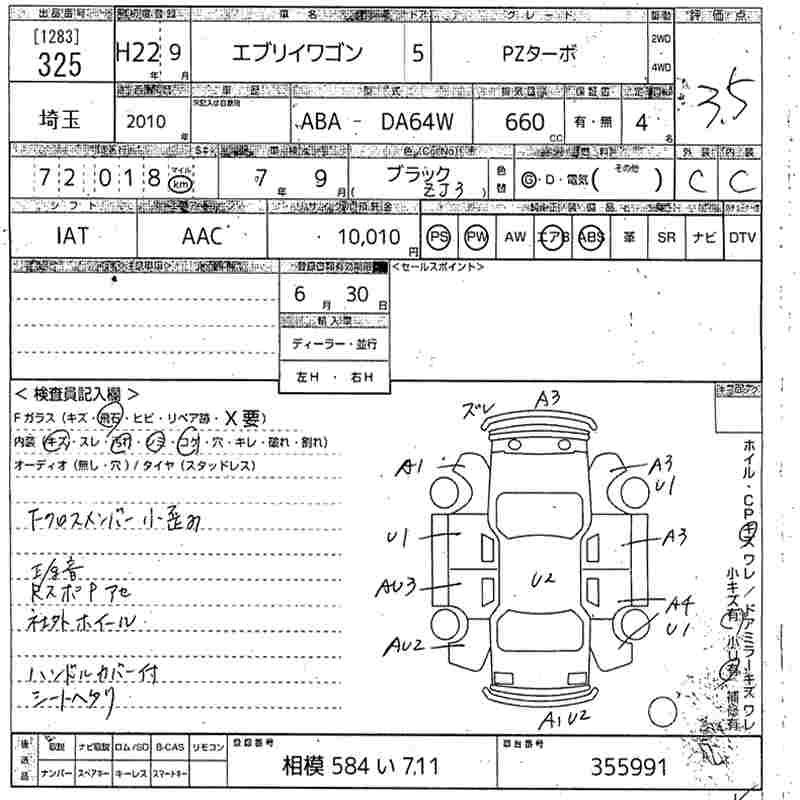 出品番号 初度登録 車名 ドア グレード 駆動 評価点
[1283]
325
H22 9 エブリイワゴン 5 PZターボ 2WD
4WD
年 月
3.5
車歴 型式 排気量 保証書 定員
埼玉 2010 年 ABA - DA64W 660 CC 有・無 4 名
色(CorNo) 燃料 外装 内装
72018 マイル km 7 年 9 月 ブラック
( ZJ3 ) 色替 G・D・電気( その他 ) C C
シフト リサイクル預託金
IAT AAC 10,010 円 PS PW AW エアB ABS 革 SR ナビ DTV
<セールスポイント>
6 月 30 日
輸入車
ディーラー・並行
左H・右H
< 検査員記入欄 >
Fガラス (キズ・飛石・ヒビ・リペア跡・X要)
内装 (キズ・スレ・汚れ・シミ・コゲ・穴・キレ・破れ・割れ)
オーディオ (無し・穴) / タイヤ (スタッドレス)
ズレ A3
A1 A3
U1
U1 A3
AU3 U2 A4
AU2 U1
A1 U2
下クロスメンバー小歪み
RスポPアセ
社外ホイール
ハンドルカバー付
シートヘタリ
ホイル・CPキズワレ / ドアミラーキズワレ
小キズ有 小凹有 補修有
後送品 取説 ナビ取説 ロム/SD B-CAS リモコン 登録番号 車台番号
ナンバー スペアキー キーレス スマートキー 相模 584 い 7.11 355991